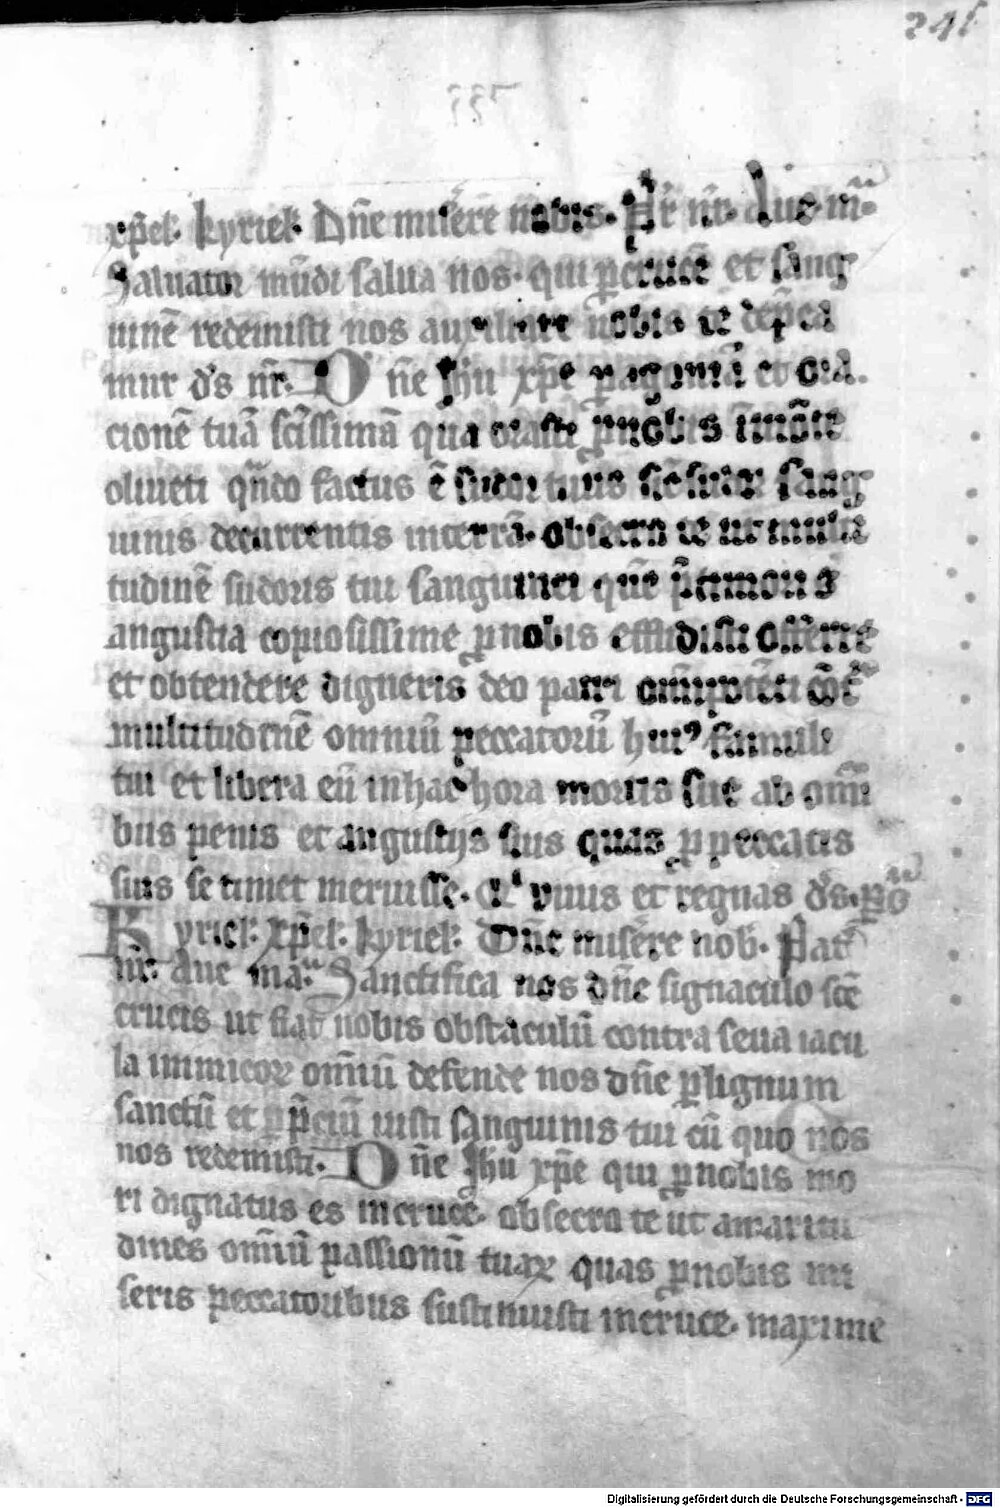 241
xp̄el. kyriel. Dn̄e miserēre nobis. Pr̄ nr̄. Aue m̄ᵃ.
Saluator mūdi salua nos. qui ꝑcrucē et sang
uinē redemisti nos auxiliare nobis te dep̄ca
mur ds̄ nr̄. Dn̄e Jhū xp̄e ꝑagoniā et ora.
cionē tuā scīssimā qua orasti ꝓnobis ī mōte
oliueti qn̄do factus ē sudor tuus sic̄ sudor sang
uinis decurrentis interrā. obsecro te ut multi
tudinē sudoris tui sanguinei quē p̄ timoris
angustia copiosissime ꝓnobis effudisti offerre
et obtendere digneris deo patri omīpotēti cōt̄
multitudinē omniū peccatorū huiꝰ famuli
tui et libera eū inhac hora mortis sue ab omī
bus penis et angustijs suis quas ꝓ peccatis
suis se timet meruisse. Qⁱ viuis et regnas ds̄. ꝑ oīᵃ
Kyriel. xp̄el. kyriel. Dn̄e miserēre nob. Pat̄
nr̄. Aue maᵃ. Sanctifica nos dn̄e signaculo scē
crucis ut fiat nobis obstaculū contra seua iacu
la inimicoꝝ omīū defende nos dn̄e ꝑlignum
sanctū et ꝑ p̄ciū iusti sanguinis tui cū quo nos
nos redemisti. Dn̄e Jhū xp̄e qui ꝓnobis mo
ri dignatus es incruce. obsecro te ut amaritu
dines omīū passionū tuaꝝ quas ꝓnobis mi
seris peccatoribus sustinuisti incruce. maxime
Digitalisierung gefördert durch die Deutsche Forschungsgemeinschaft - DFG